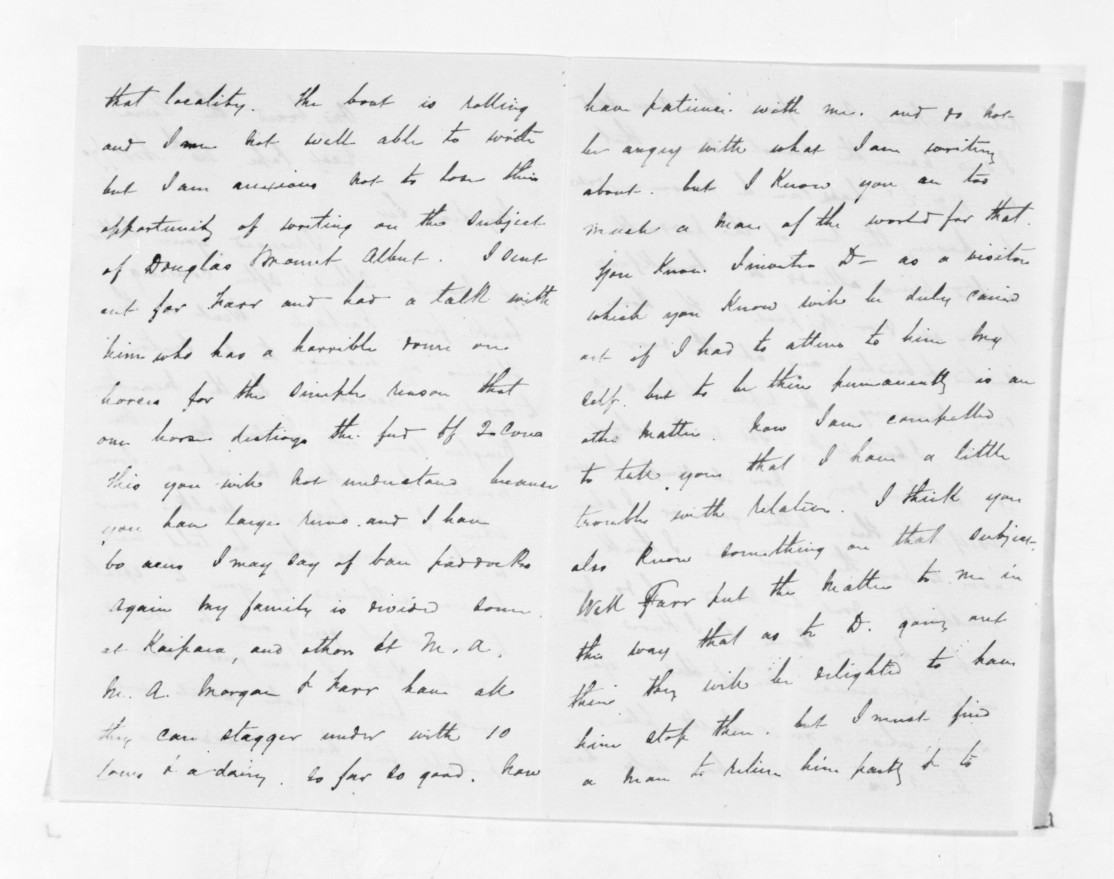 that locality. The boat is rolling
and I am not well able to write
but I am anxious not to lose this
opportunity of writing on the subject
of Douglas Mount Albert. I sent
out for Farr and had a talk with
him who has a horrible down on
horses for the simple reason that
one horse destroys the feed of 2 Cows
this you will not understand because
you have large runs. and I have
60 acres I may say of bare paddocks
again my family is divided some
at Kaipara, and others at M. A.
M. A. Morgan & Farr have all
they can stagger under with 10
Cows & a dairy. so far so good. Now
have patience with me. and do not
be angry with what I am writing
about. but I know you are too
much a man of the world for that.
You know I invited D— as a visitor
which you know will be duly carried
out if I had to attend to him my
self. but to be there permanently is an
other matter. Now I am compelled
to tell you that I have a little
trouble with relations. I think you
also know something on that subject.
Well Farr put the matter to me in
this way that as to D. going out
there they will be delighted to have
him stop there. but I must find
a man to relieve him partly & to